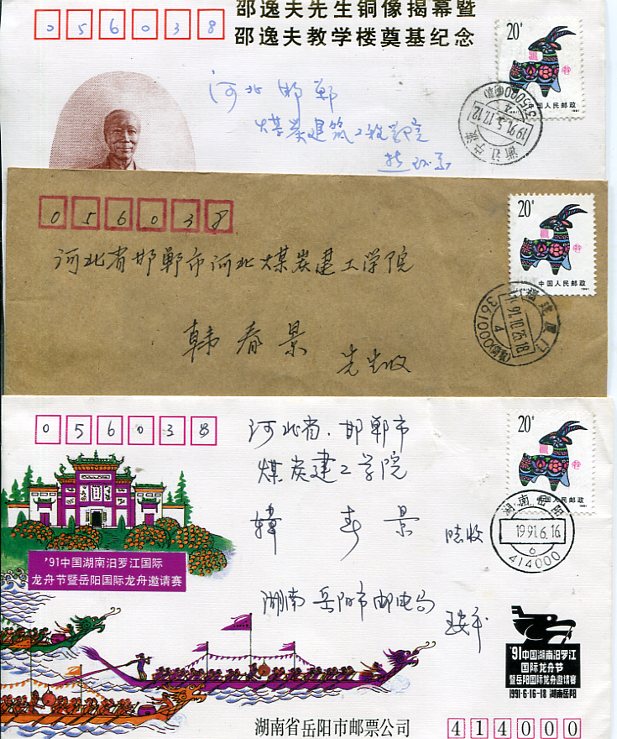 邵逸夫先生铜像揭幕暨
邵逸夫教学楼奠基纪念
056038
20分
中国人民邮政
河北 邯郸
煤炭建筑工程学院
浙江宁波
1991.5.17.12
315000
056038
20分
中国人民邮政
河北省邯郸市河北煤炭建工学院
韩春景 先生收
福建厦门
361000
056038
20分
中国人民邮政
河北省、邯郸市
煤炭建工学院
韩春景
收
湖南岳阳
1991.6.16
6
414000
'91中国湖南汨罗江国际
龙舟节暨岳阳国际龙舟邀请赛
湖南岳阳市邮电局
'91中国湖南汨罗江
国际龙舟节
暨岳阳国际龙舟邀请赛
1991·6·16-18 湖南岳阳
湖南省岳阳市邮票公司
414000